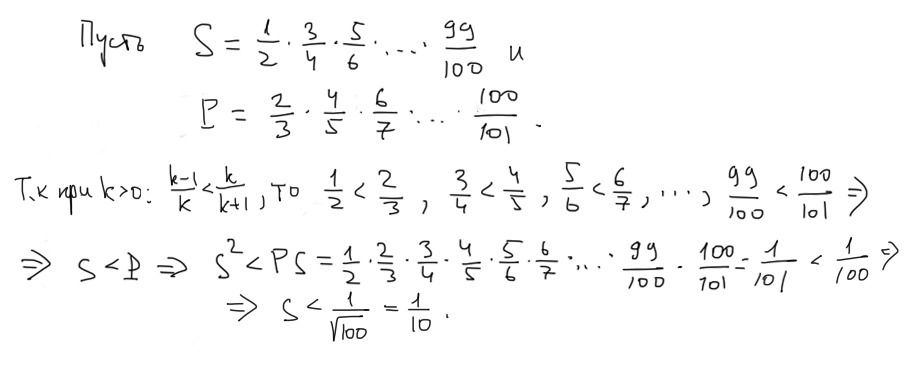 Пусть S = 1/2 · 3/4 · 5/6 · ... · 99/100 и
P = 2/3 · 4/5 · 6/7 · ... · 100/101 .
Т.к при k>0: (k-1)/k < k/(k+1), то 1/2 < 2/3, 3/4 < 4/5, 5/6 < 6/7, ..., 99/100 < 100/101 ⇒
⇒ S < P ⇒ S² < PS = 1/2 · 2/3 · 3/4 · 4/5 · 5/6 · 6/7 · ... 99/100 · 100/101 = 1/101 < 1/100 ⇒
⇒ S < 1/√100 = 1/10 .